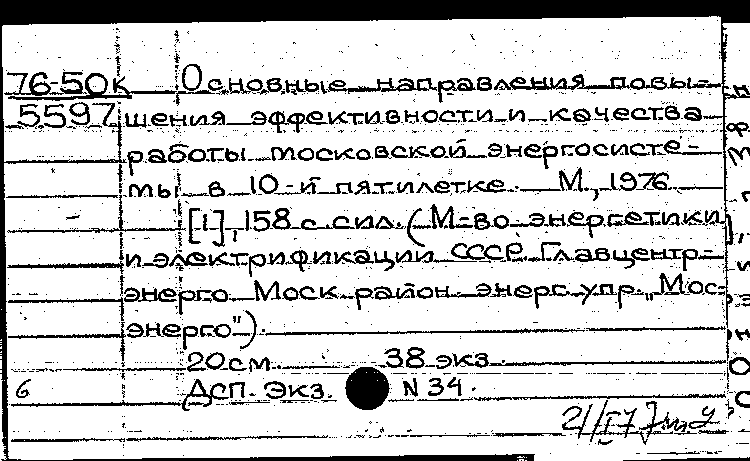 76-50к Основные направления повы-
5597 шения эффективности и качества
работы московской энергосисте-
мы в 10-й пятилетке. М., 1976
[1], 158 с с ил. (М-во энергетики
и электрификации СССР. Главцентр-
энерго. Моск. район. энерг. упр. „Мос-
энерго")
20 см. 38 экз.
6 ДСП. Экз. N 34.
21/I 7